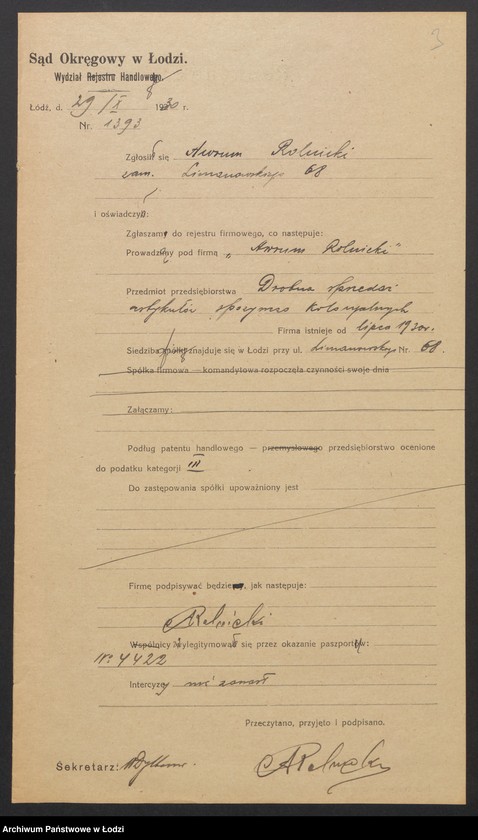 3
Sąd Okręgowy w Łodzi.
Wydział Rejestru Handlowego.
Łódź, d. 29/X 1930 r.
Nr. 1393
Zgłosił się Awrum Rolnicki
zam. Limanowskiego 68
i oświadczył:
Zgłaszam do rejestru firmowego, co następuje:
Prowadzę pod firmą „Awrum Rolnicki"
Przedmiot przedsiębiorstwa Drobna sprzedaż
artykułów spożywczo kolonjalnych
Firma istnieje od lipca 1930 r.
Siedziba spółki znajduje się w Łodzi przy ul. Limanowskiego Nr. 68.
Spółka firmowa — komandytowa rozpoczęła czynności swoje dnia
Załączamy:
Podług patentu handlowego — przemysłowego przedsiębiorstwo ocenione
do podatku kategorji III
Do zastępowania spółki upoważniony jest
Firmę podpisywać będzie, jak następuje:
ARolnicki
Wspólnicy wylegitymował się przez okazanie paszportu:
No 4422
Intercyzy nie zawarł
Przeczytano, przyjęto i podpisano.
Sekretarz:
ARolnicki
Archiwum Państwowe w Łodzi